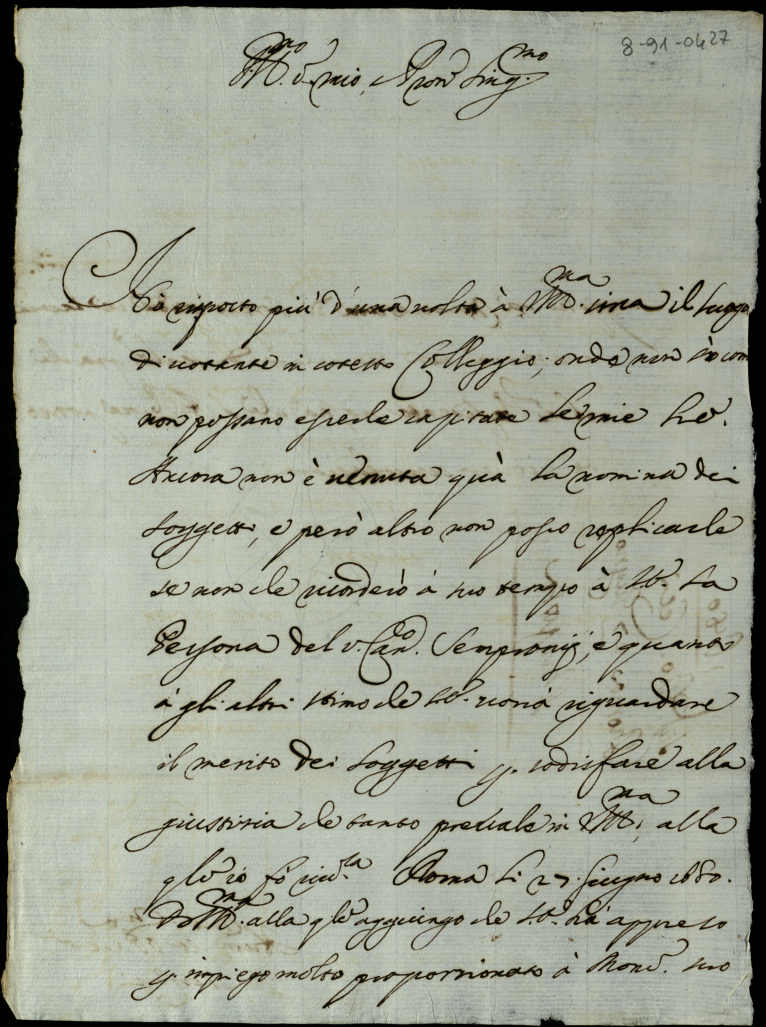 8-91-0427
Ill.mo S. mio, e Pron Sing.mo
Hò risposto più d'una uolta à V.S. Ill.ma il luogo
di uotante in cotesto Colleggio; onde non sò com
non possano esserle capitate le mie
Ancora non è uenuta quà la nomina dei
soggetti, e però altro non posso replicarle
se non che ricorderò à suo tempo à la
Persona del S. Can.co Sempronij, e quanto
à gli altri stimo che uorrà riguardare
il merito dei soggetti p. sodisfare alla
giustitia che tanto preuale in Ill.ma, alla
qle io fò riu.za Roma li 27 Giugno 1680.
D V.S. Ill.ma alla qle aggiungo che hà appreso
p. impiego molto proportionato à Mons. suo